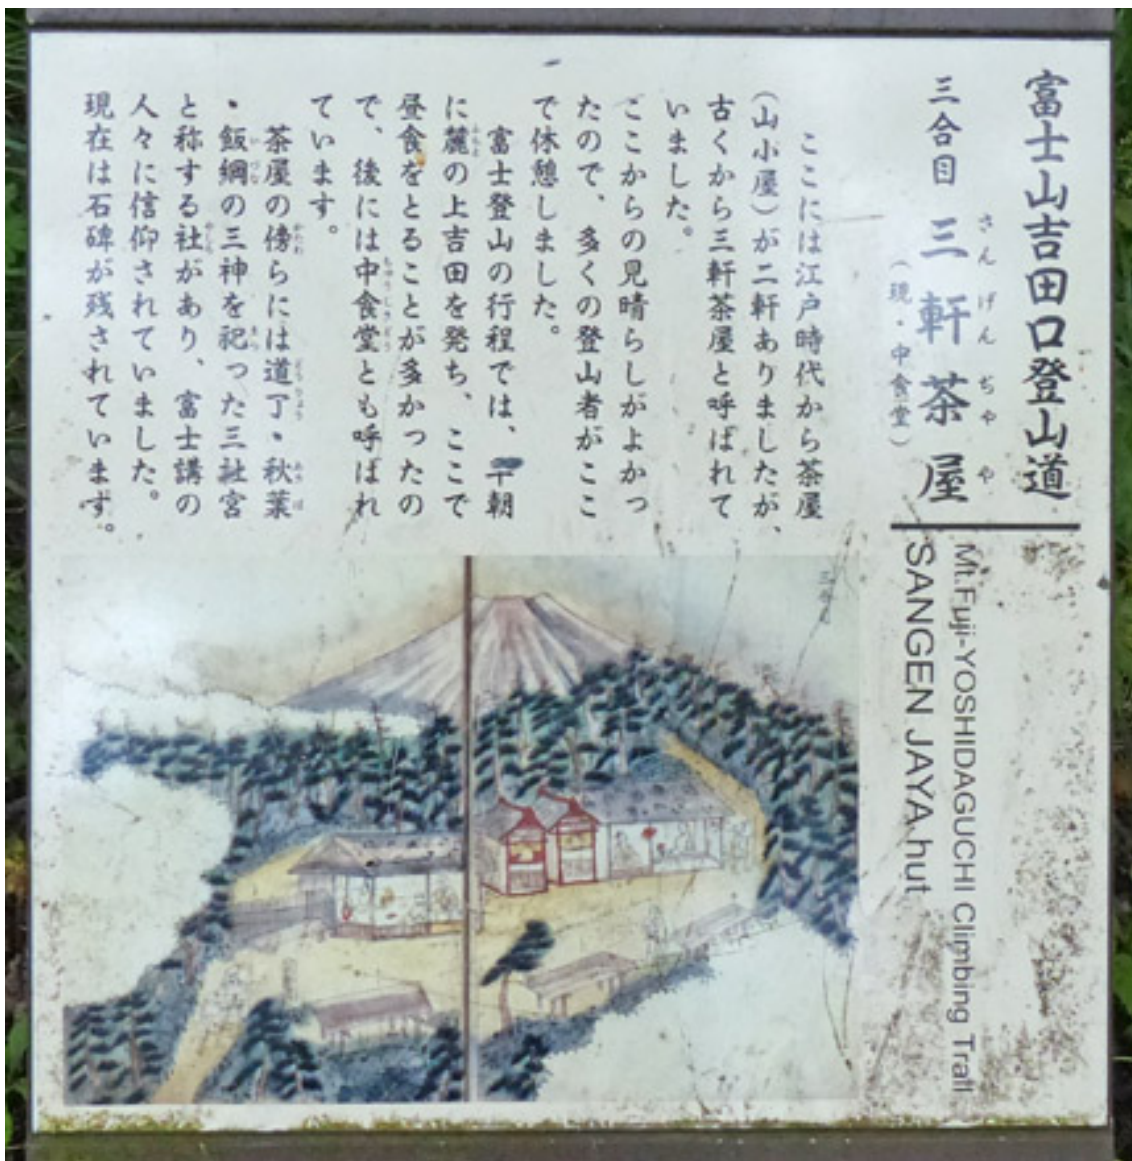 富士山吉田口登山道
三合目 三軒茶屋
さんげんぢゃや
(現・中食堂)
Mt.Fuji-YOSHIDAGUCHI Climbing Trail
SANGEN JAYA hut
ここには江戸時代から茶屋
(山小屋)が二軒ありましたが、
古くから三軒茶屋と呼ばれて
いました。
ここからの見晴らしがよかっ
たので、多くの登山者がここ
で休憩しました。
富士登山の行程では、早朝
に麓の上吉田を発ち、ここで
ふもと
昼食をとることが多かったの
で、後には中食堂とも呼ばれ
ちゅうしきどう
ています。
茶屋の傍らには道了・秋葉
かたわ
どうりょう
あきば
・飯綱の三神を祀った三社宮
いづな
まつ
と称する社があり、富士講の
やしろ
人々に信仰されていました。
現在は石碑が残されています。